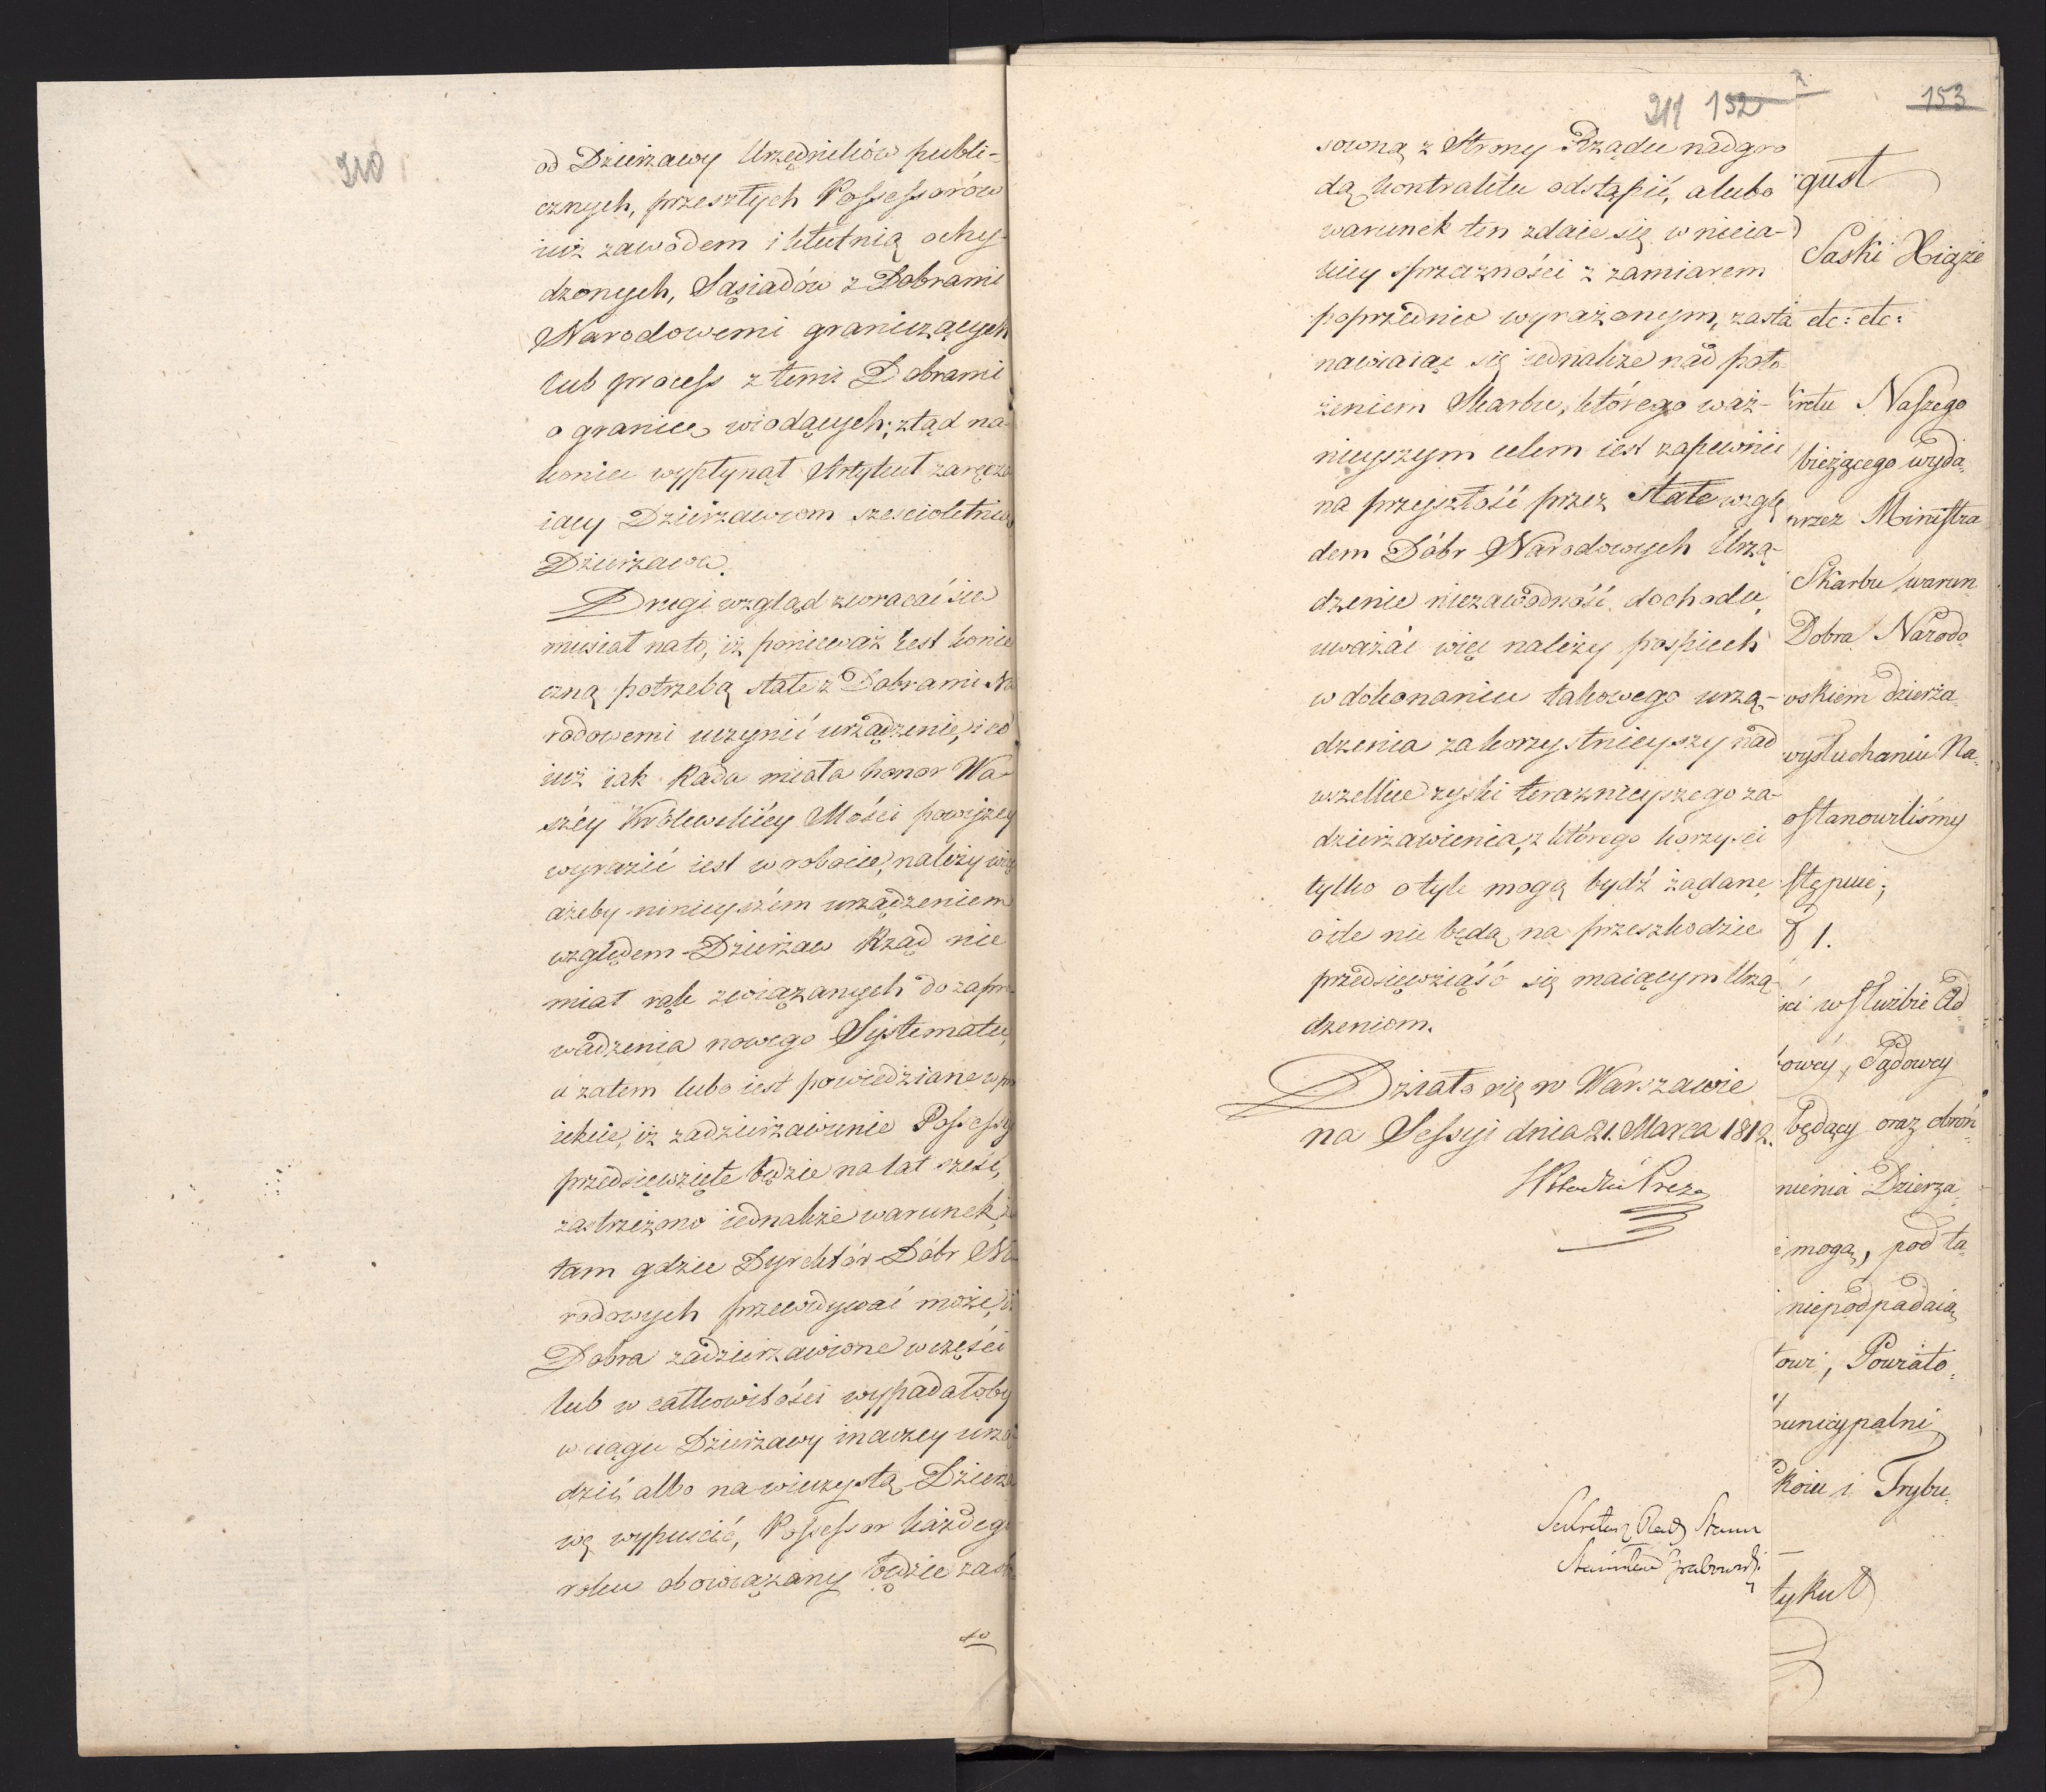 210
od Dzierżawy Urzędników publi-
cznych, przeszłych Possessorów
iuż zawodem i kłutnią ochy-
dzonych, Sąsiadów z Dobrami
Narodowemi graniczących
lub process z temi Dobrami
o granice wiodących; ztąd na
koniec wypłynął Artykuł zaręcza
iący Dzierżawcom sześcioletnią
Dzierżawę.
Drugi wzgląd zwracać się
musiał na to, iż ponieważ iest konie
czną potrzebą stałe z Dobrami Na
rodowemi uczynić urządzenie, i co
iuż iak Rada miała honor Wa-
széy Królewskiéy Mości powyżey
wyrazić iest w robocie, należy więc
ażeby ninieyszém urządzeniem
względem Dzierżaw Rząd nie
miał rąk związanych do zapro
wadzenia nowego Systematu,
a zatem lubo iest powiedziane w pro
iekcie, iż zadzierżawienie Possessyi
przedsięwzięte będzie na lat sześć,
zastrzeżono iednakże warunek, że
tam gdzie Dyrektór Dóbr Na-
rodowych przewidywać może, iż
Dobra zadzierżawione w części
lub w całkowitości wypadałoby
w ciągu Dzierżawy inaczey urzą
dzić, albo na wieczystą Dzierża
wę wypuścić, Possessor każdego
roku obowiązany będzie za sto-
so
211 152
sowną z Strony Rządu nadgro
dą kontraktu odstąpić, a lubo
warunek ten zdaie się w nieia-
kiey sprzeczności z zamiarem
poprzednio wyrażonym, zasta
nawiaiąc się iednakże nad poło-
żeniem Skarbu, którego waż-
nieyszym celem iest zapewnić
na przyszłość przez stałe wzglę
dem Dóbr Narodowych Urzą-
dzenie niezawodność dochodu,
uważać więc należy pośpiech
w dokonaniu takowego urzą-
dzenia za korzystnieyszy nad
wszelkie zyski teraznieyszego za-
dzierżawienia, z którego korzyści
tylko o tyle mogą bydź żądane
o ile nie będą na przeszkodzie
przedsięwziąść się maiącym Urzą-
dzeniom.
Działo się w Warszawie
na Sessyi dnia 21. Marca 1812.
Sekretarz Rady Stanu
Stanisław Grabowski
153
gust
Saski Xiąże
etc: etc:
kretu Naszego
bieżącego wyda=
przez Ministra
Skarbu warun
Dobra Narodo=
oskiem dzierża
wysłuchaniu Na=
ostanowiliśmy
stępuie;
§ 1.
ści w służbie Ad=
bowéy, Sądowéy
będący oraz obroń=
nienia Dzierża
e mogą, pod ta=
niepodpadaią
towi, Powiato=
unicypalni
koiu i Trybu=
tykuł